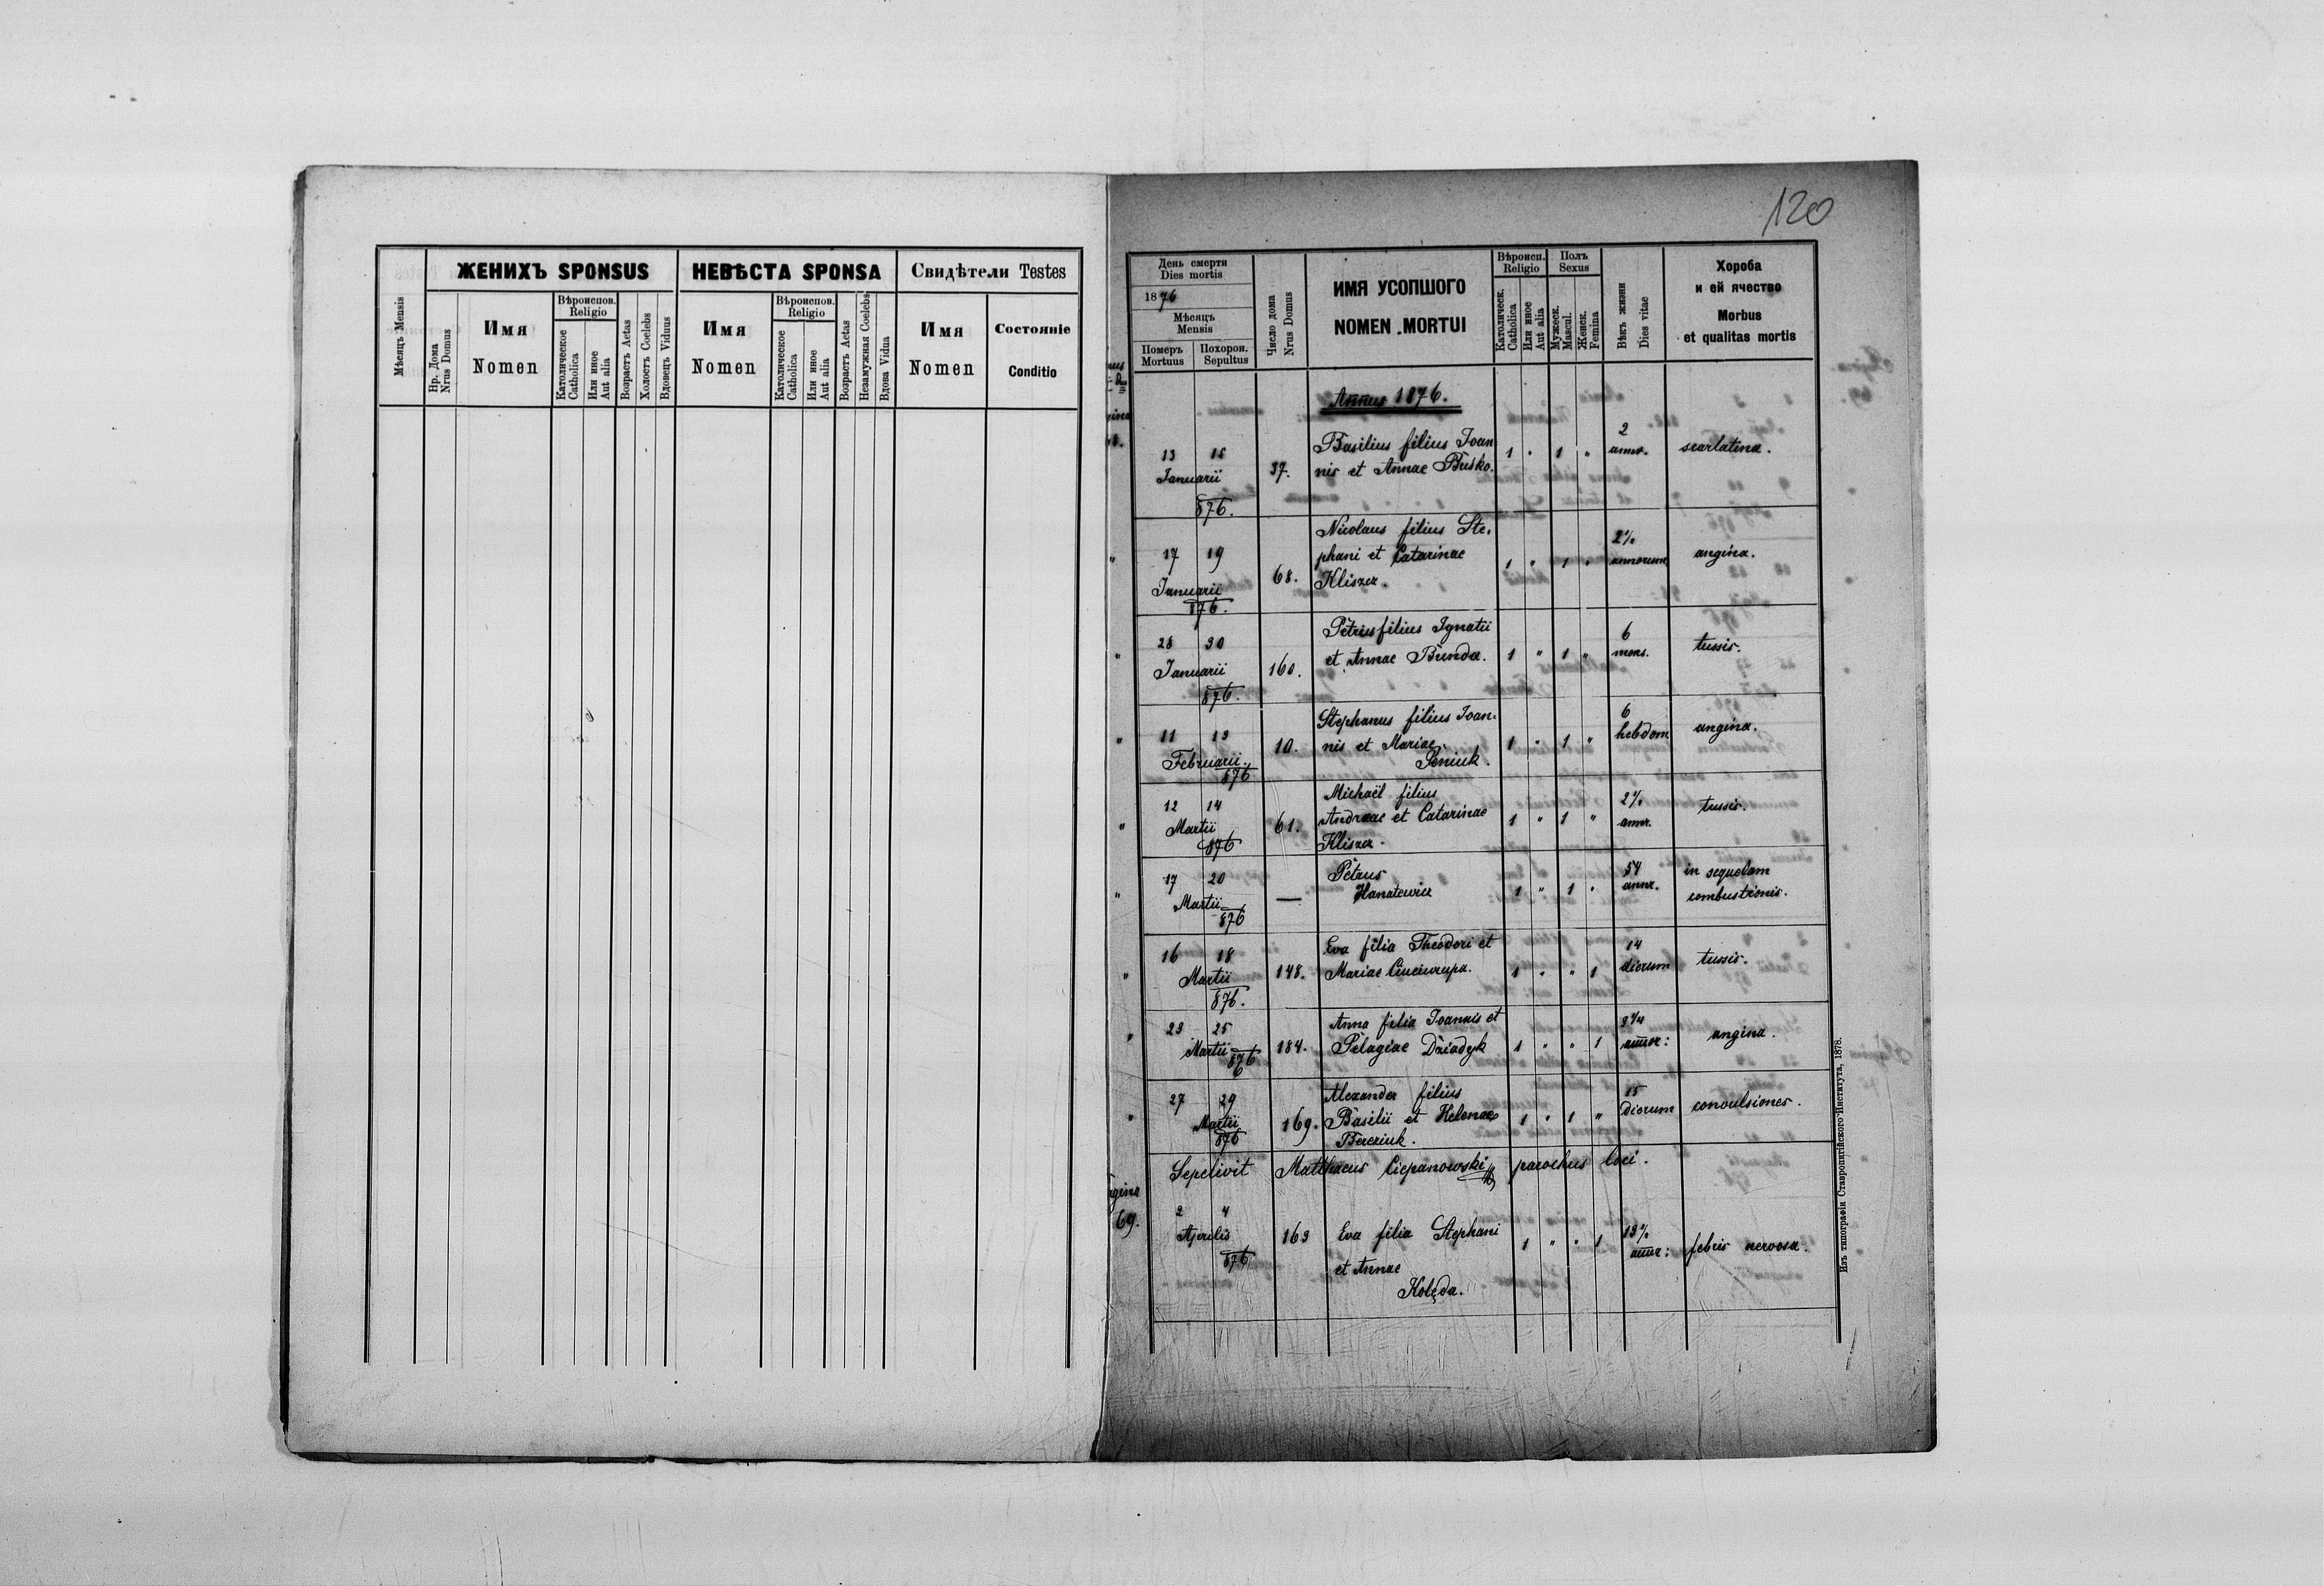 ЖЕНИХЪ SPONSUS
НЕВѢСТА SPONSA
Свидѣтели Testes
Мѣсяцъ Mensis
Нр. Дома
Nrus Domus
Имя
Nomen
Вѣроиспов.
Religio
Католическое
Catholica
Или иное
Aut alia
Возрастъ Aetas
Холостъ Coelebs
Вдовецъ Viduus
Имя
Nomen
Вѣроиспов.
Religio
Католическое
Catholica
Или иное
Aut alia
Возрастъ Aetas
Незамужная Coelebs
Вдова Vidua
Имя
Nomen
Состояніе
Conditio
120
День смерти
Dies mortis
1876
Мѣсяцъ
Mensis
Померъ
Mortuus
Похорон.
Sepultus
Число дома
Nrus Domus
ИМЯ УСОПШОГО
NOMEN MORTUI
Вѣроисп.
Religio
Католическ.
Catholica
Или иное
Aut alia
Полъ
Sexus
Мужеск.
Mascul.
Женск.
Femina
Вѣкъ жизни
Dies vitae
Хороба
и ей ячество
Morbus
et qualitas mortis
Annus 1876.
13 15
Januarii
876.
37.
Basilius filius Joan
nis et Annae Busko.
1 " 1 "
2
annor.
scarlatina.
" 17 19
Januarii
876.
68.
Nicolaus filius Ste-
phani et Catarinae
Kliszcz.
1 " 1 "
annorum
angina.
" 28 30
Januarii
876.
160.
Petrus filius Ignatii
et Annae Bunda.
1 " 1 "
6
mens.
tussis.
" 11 13
Februarii
876
10.
Stephanus filius Joan-
nis et Mariae
Seniuk.
1 " 1 "
6
hebdom.
angina.
" 12 14
Martii
876
61.
Michaël filius
Andreae et Catarinae
Kliszcz.
1 " 1 "
annr.
tussis.
" 17 20
Martii
876
—
Petrus
Hanatewicz
1 " 1 "
54
annr.
in sequelam
combustionis.
" 16 18
Martii
876.
148.
Eva filia Theodori et
Mariae Ciuciurupa.
1 " " 1
14
dierum
tussis.
" 23 25
Martii 876
184.
Anna filia Joannis et
Pelagiae Dziadyk
1 " " 1
annor:
angina.
" 27 29
Martii
876
169.
Alexander filius
Basilii et Helenae
Bereziuk.
1 " 1 "
15
Dierum
convulsiones.
Sepelivit Matthaeus Ciepanowski parochus loci.
69.
2 4
Aprilis
876
163
Eva filia Stephani
et Annae
Kolęda.
1 " " 1
annr:
febris nervosa.
Изъ типографіи Ставропигійского Института, 1878.